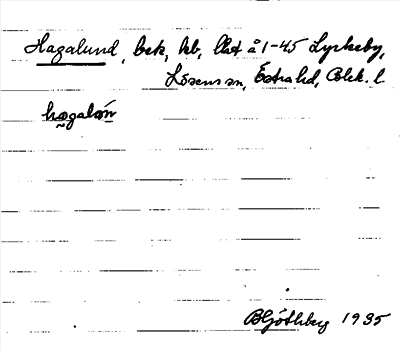 Hagalund, bek, hb, lht å 1-45 Lyckeby,
Lösens sn, Östra hd, Blek. l.
hagalún
B Göthberg 1935